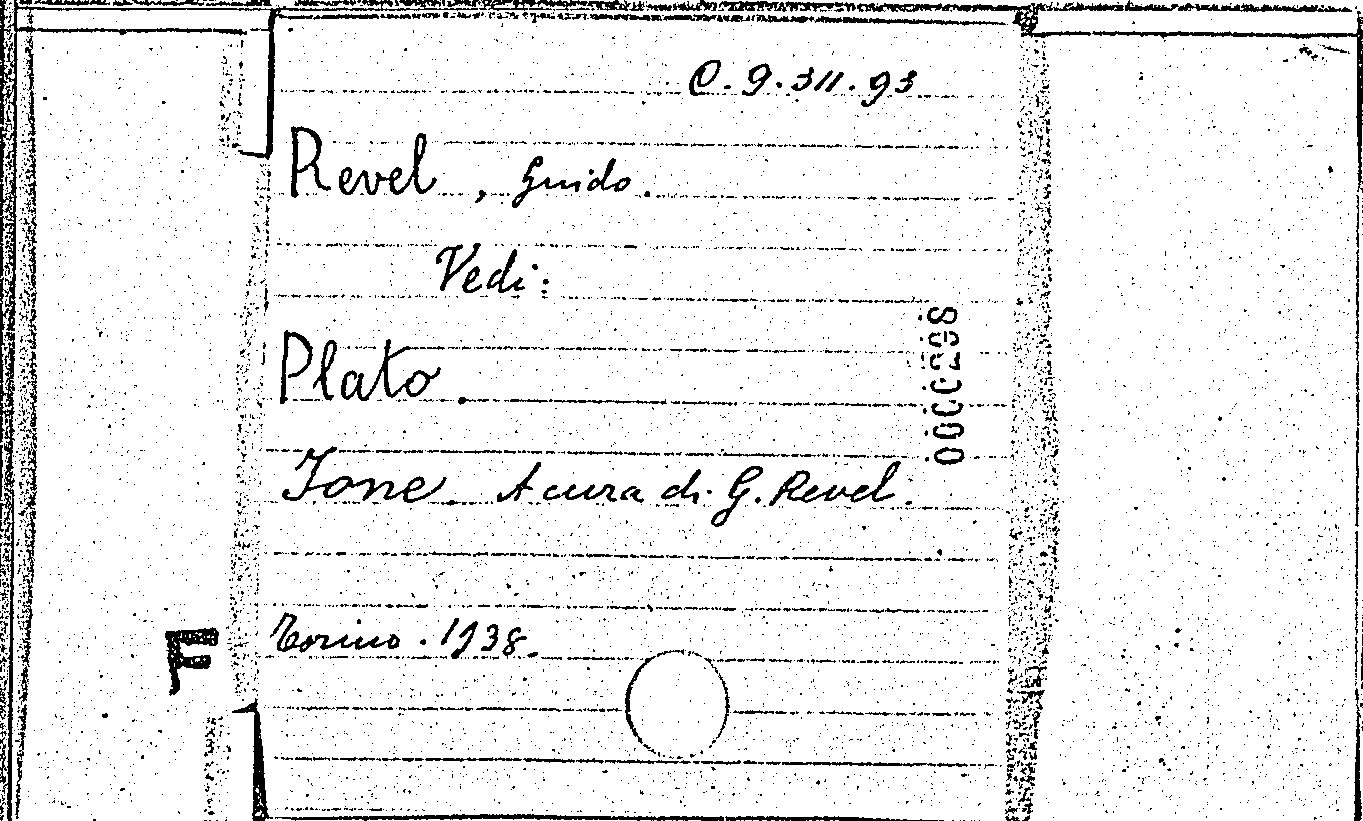 C. 9. 311. 93
Revel, Guido.
Vedi:
Plato.
Jone. A cura di G. Revel.
Torino. 1938.
0000298
F